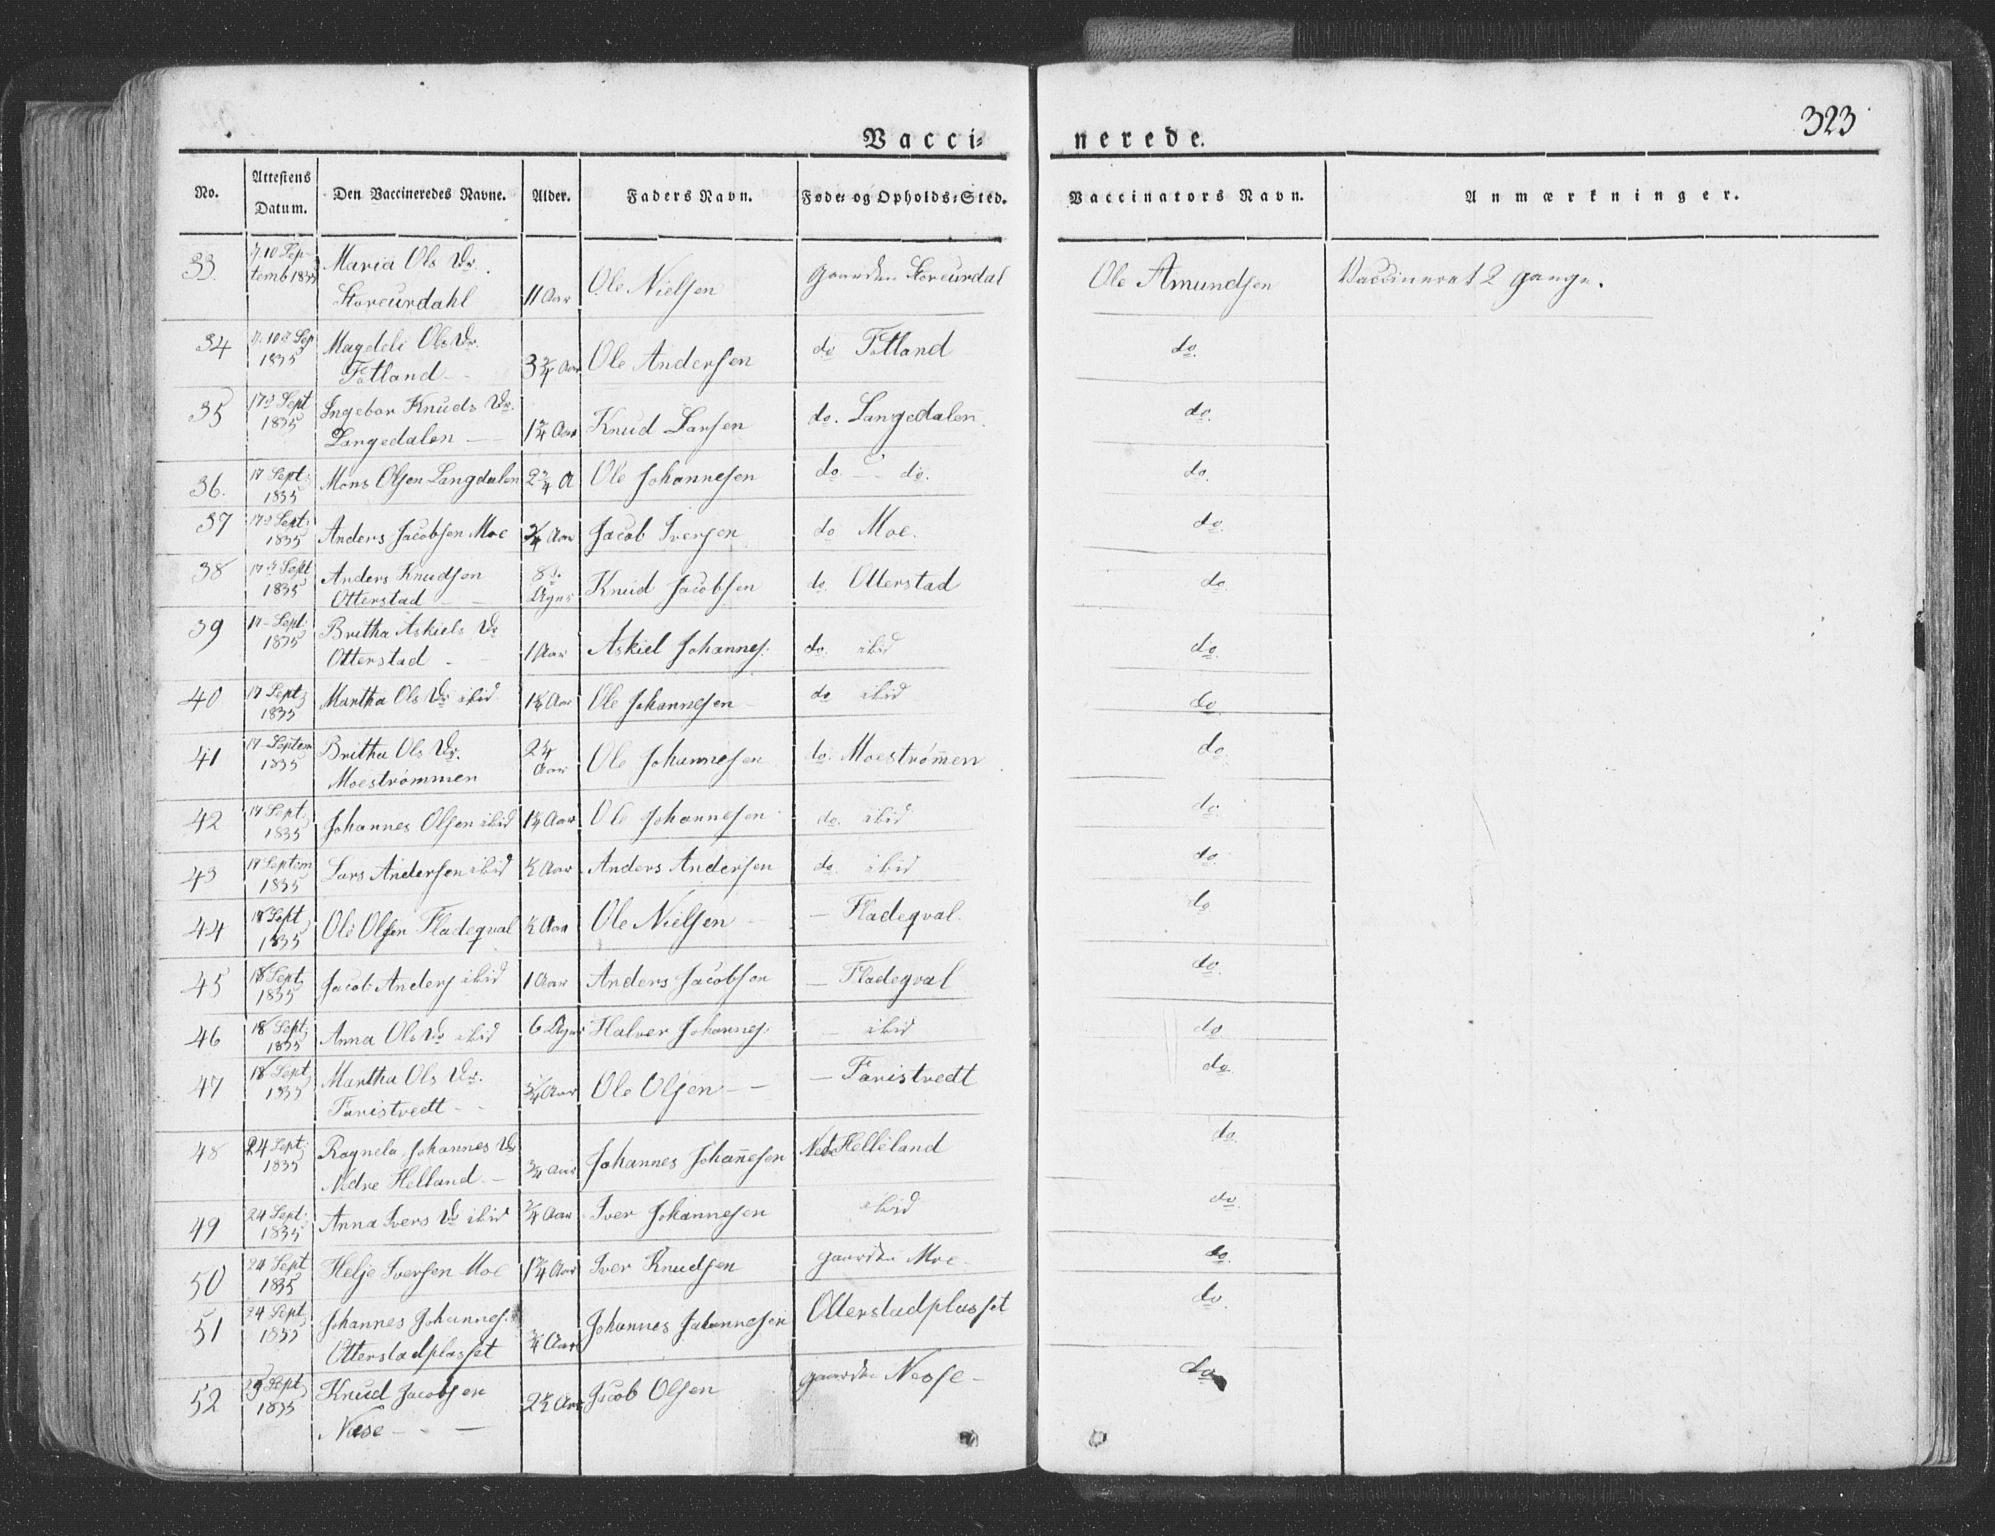 323
Vacci= nerede.
No. Attestens Datum. Den Vaccineredes Navne. Alder. Faders Navn. Føde= og Opholds=Sted. Vaccinators Navn. Anmærkninger.
33. 10 Sep-
temb 1835 Maria Ols Dr.
Storeurdahl 11 Aar Ole Nielsen Gaarden Storeurdal Ole Amundsen Vaccineret 2 gange.
34 10 Sep
1835 Magdeli Ols Dr.
Totland 3 3/4 Aar Ole Andersen do Totland do.
35 17 Sept
1835 Ingebor Knuds Dr.
Langedalen 1 3/4 Aar Knud Larsen do. Langedalen. do.
36. 17 Sept.
1835 Mons Olsen Langdalen 2 3/4 A Ole Johannesen do - do. do.
37 17 Sept.
1835 Anders Jacobsen Moe 3/4 Aar Jacob Iversen do Moe. do.
38 17 Sept
1835 Anders Knudsen
Otterstad 8 Uger Knud Jacobsen do Otterstad do
39 17 Sept.
1835 Britha Askiels Dr
Otterstad 1 Aar Askiel Johannes: do. ibid do.
40 17 Sept.
1835 Martha Ols Dr ibid Aar Ole Johannesen do ibid do.
41 17 Septem
1835 Britha Ols Dr.
Moestrømmen 2 1/4
Aar Ole Johannesen do. Moestrømen do.
42 17 Sept.
1835 Johannes Olsen ibid Aar Ole Johannesen do. ibid do.
43 17 Septem
1835 Lars Andersen ibid 1/2 Aar Anders Andersen do. ibid do.
44 18 Sept
1835 Ole Olsen Fladeqval 1/2 Aar Ole Nielsen - Fladeqval. do
45 18 Sept.
1835 Jacob Anders ibid 1 Aar Anders Jacobsen - Fladeqval do.
46 18 Sept.
1835 Anna Ols Dr ibid 6 Uger Halver Johannes: - ibid do.
47 18 Sept.
1835 Martha Ols Dr.
Faristvedt 3/4 Aar Ole Olsen - Faristvedt do.
48 24 Sept.
1835 Ragnela Johannes Dr
Nedre Helland 3/4 Aar Johannes Johañesen Nedr Helleland do.
49 24 Sept.
1835 Anna Ivers Dr ibid 3/4 Aar Iver Johannesen ibid do.
50 24 Sept
1835 Helje Iversen Moe 1 3/4 Aar Iver Knudsen gaarden Moe do.
51 24 Sept.
1835 Johannes Johannes:
Otterstadplasset 3/4 Aar Johannes Johannesen Otterstadplasset do.
52 25 Sept.
1835 Knud Jacobsen
Nese 2 1/2 Aar Jacob Olsen gaarden Neose do